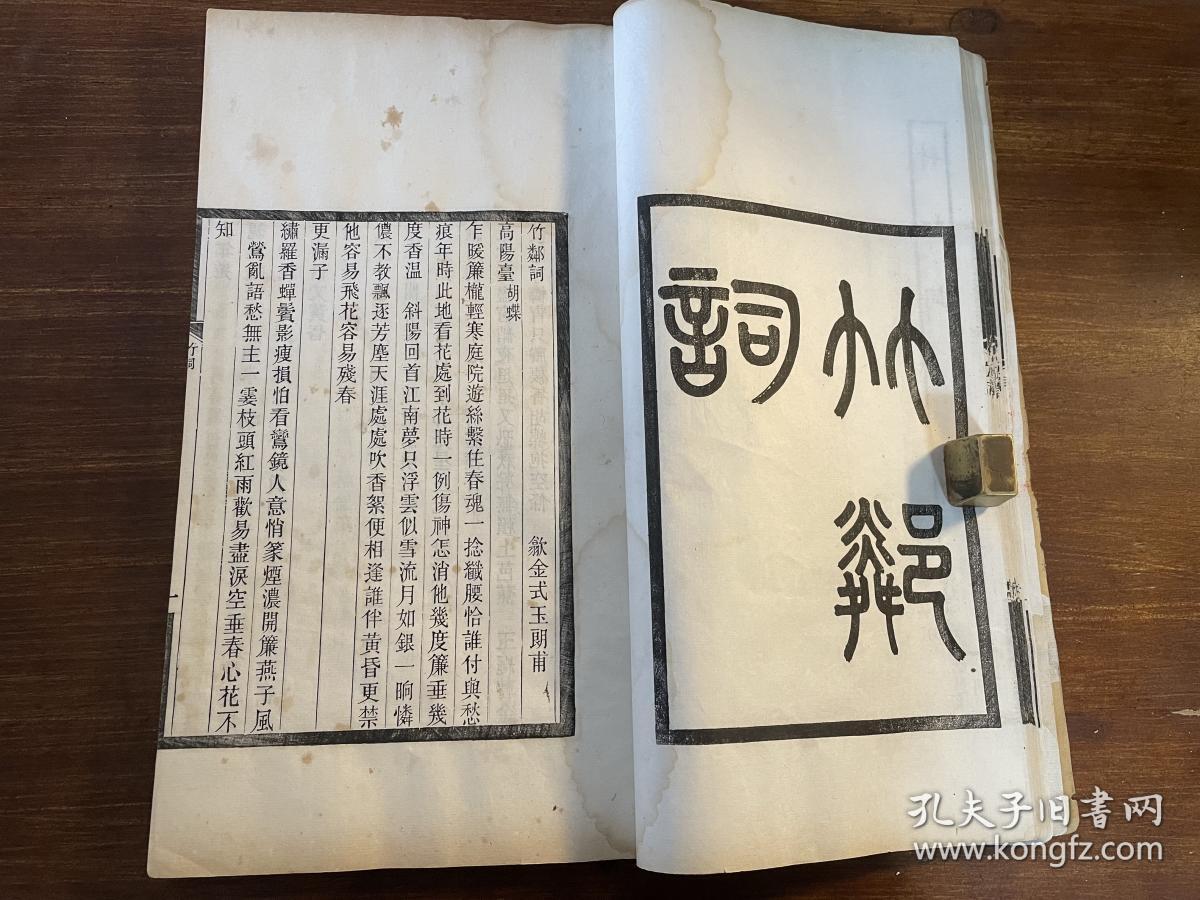 竹鄰
詞
竹鄰詞
歙金式玉朗甫
高陽臺 胡蝶
乍暖簾櫳輕寒庭院遊絲繫住春魂一捻纖腰恰誰付與愁
痕年時此地看花處到花時一例傷神怎消他幾度簾垂幾
度香溫　斜陽回首江南夢只浮雲似雪流月如銀一晌憐
儂不教飄逐芳塵天涯處處吹香絮便相逢誰伴黃昏更禁
他容易飛花容易殘春
更漏子
繡羅香蟬鬢影瘦損怕看鸞鏡人意悄篆煙濃開簾燕子風
　鶯亂語愁無主一霎枝頭紅雨歡易盡淚空垂春心花不
知
竹詞
一
孔夫子旧书网
www.kongfz.com